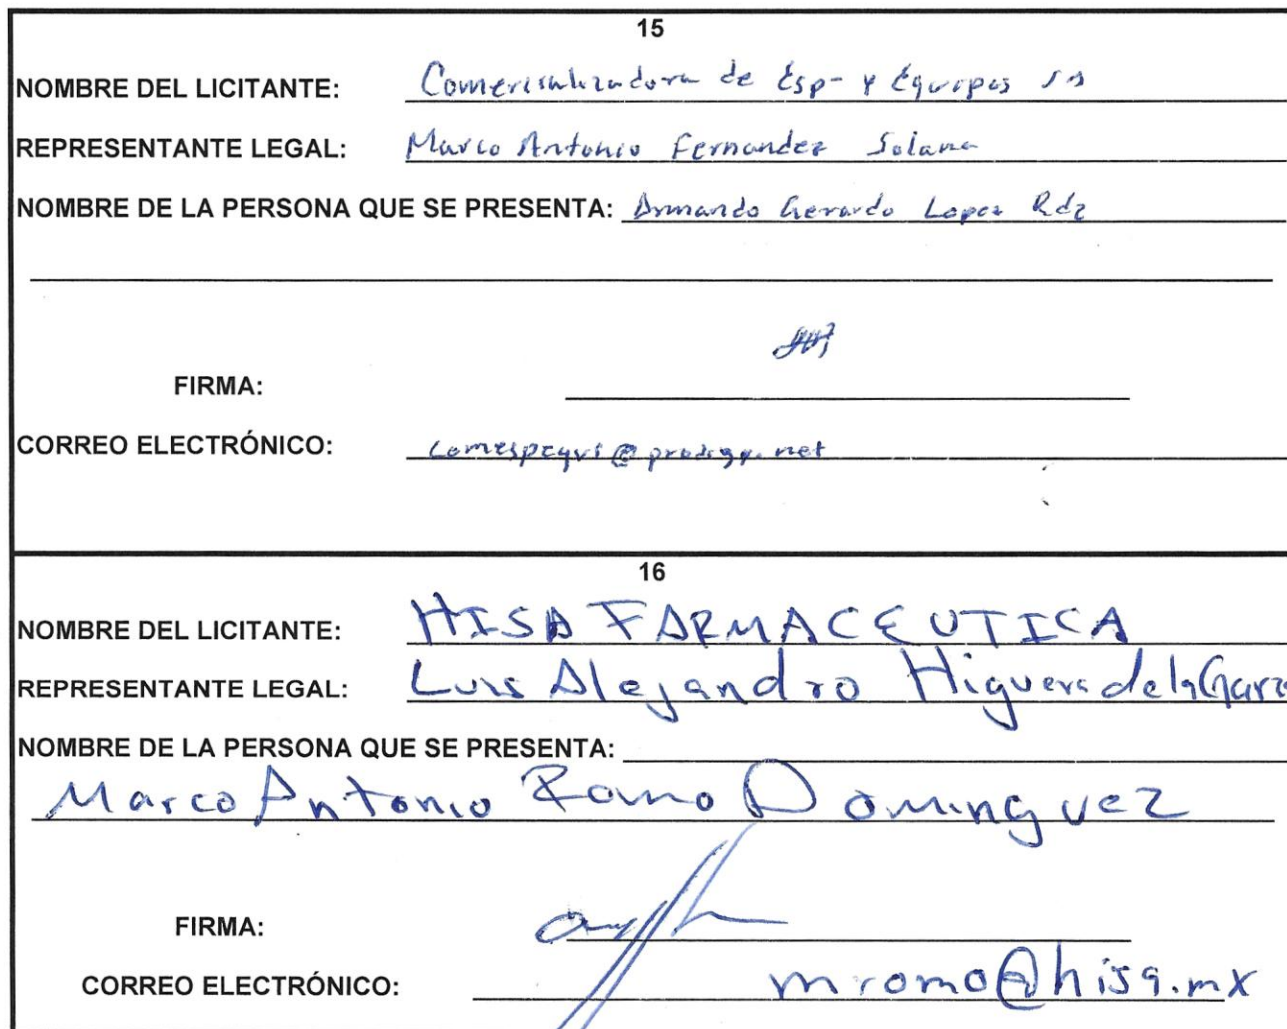 15
NOMBRE DEL LICITANTE: Comercializadora de Esp- y Equipos SA
REPRESENTANTE LEGAL: Marco Antonio Fernandez Solana
NOMBRE DE LA PERSONA QUE SE PRESENTA: Armando Gerardo Lopez Rdz
FIRMA:
CORREO ELECTRÓNICO: comespequi@prodigy.net
16
NOMBRE DEL LICITANTE: HISA FARMACEUTICA
REPRESENTANTE LEGAL: Luis Alejandro Higuera de la Garza
NOMBRE DE LA PERSONA QUE SE PRESENTA:
Marco Antonio Romo Dominguez
FIRMA:
CORREO ELECTRÓNICO: mromo@hisa.mx